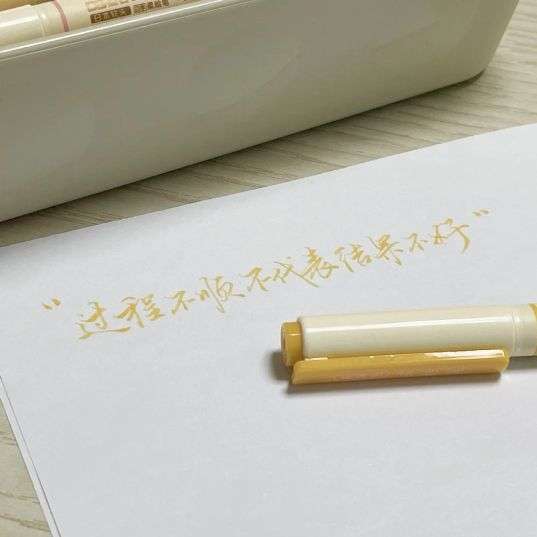 "过程不顺不代表结果不好"